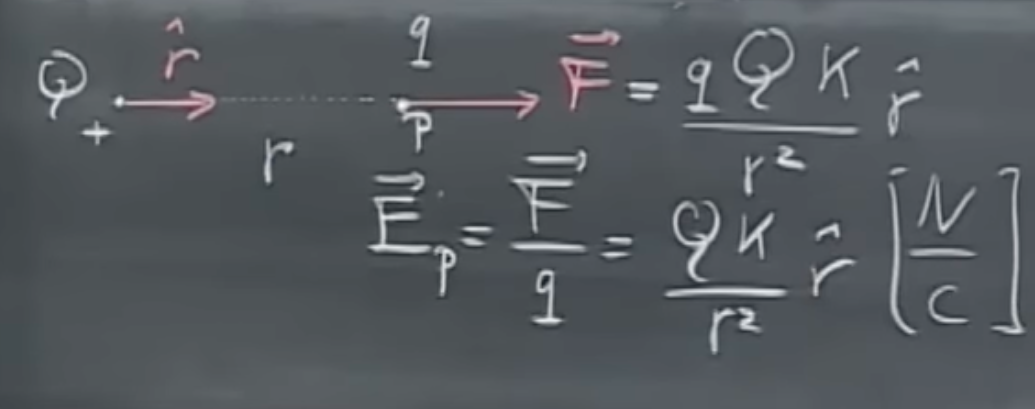 Q + r̂ r q P F⃗ = qQK/r² r̂
E⃗p = F⃗/q = QK/r² r̂ [N/C]